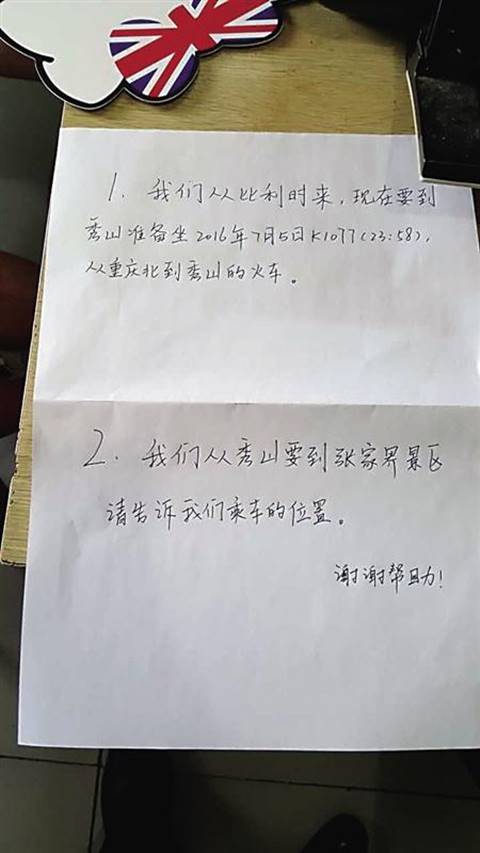 1. 我们从比利时来，现在要到
秀山准备坐2016年7月5日K1077(23:58)，
从重庆北到秀山的火车。
2. 我们从秀山要到张家界景区
请告诉我们乘车的位置。
谢谢帮助！